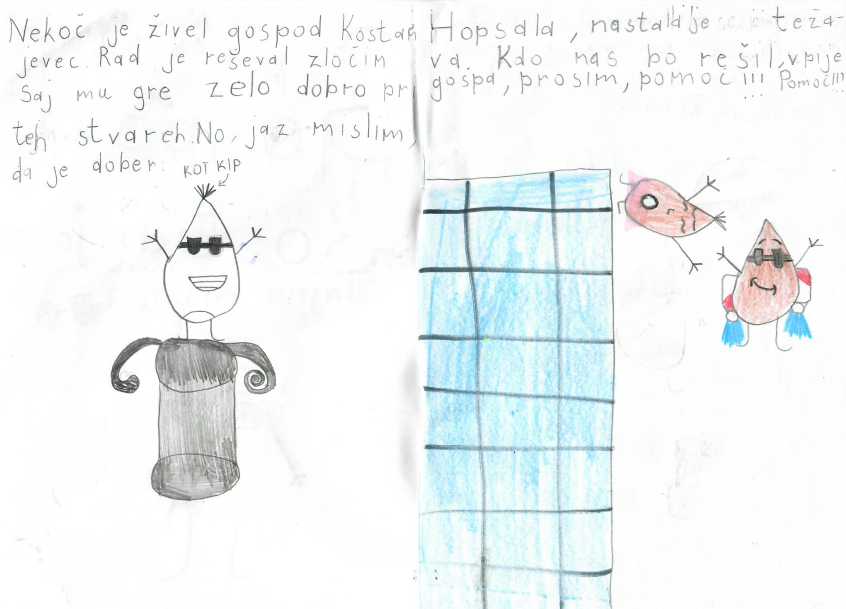 Nekoč je živel gospod Kostan
jevec. Rad je reševal zločin
saj mu gre zelo dobro pri
teh stvareh. No, jaz mislim,
da je dober.
KOT KIP
Hopsala, nastala je teža-
va. Kdo nas bo rešil, vpije
gospa, prosim, pomoč !!! Pomoč!!!